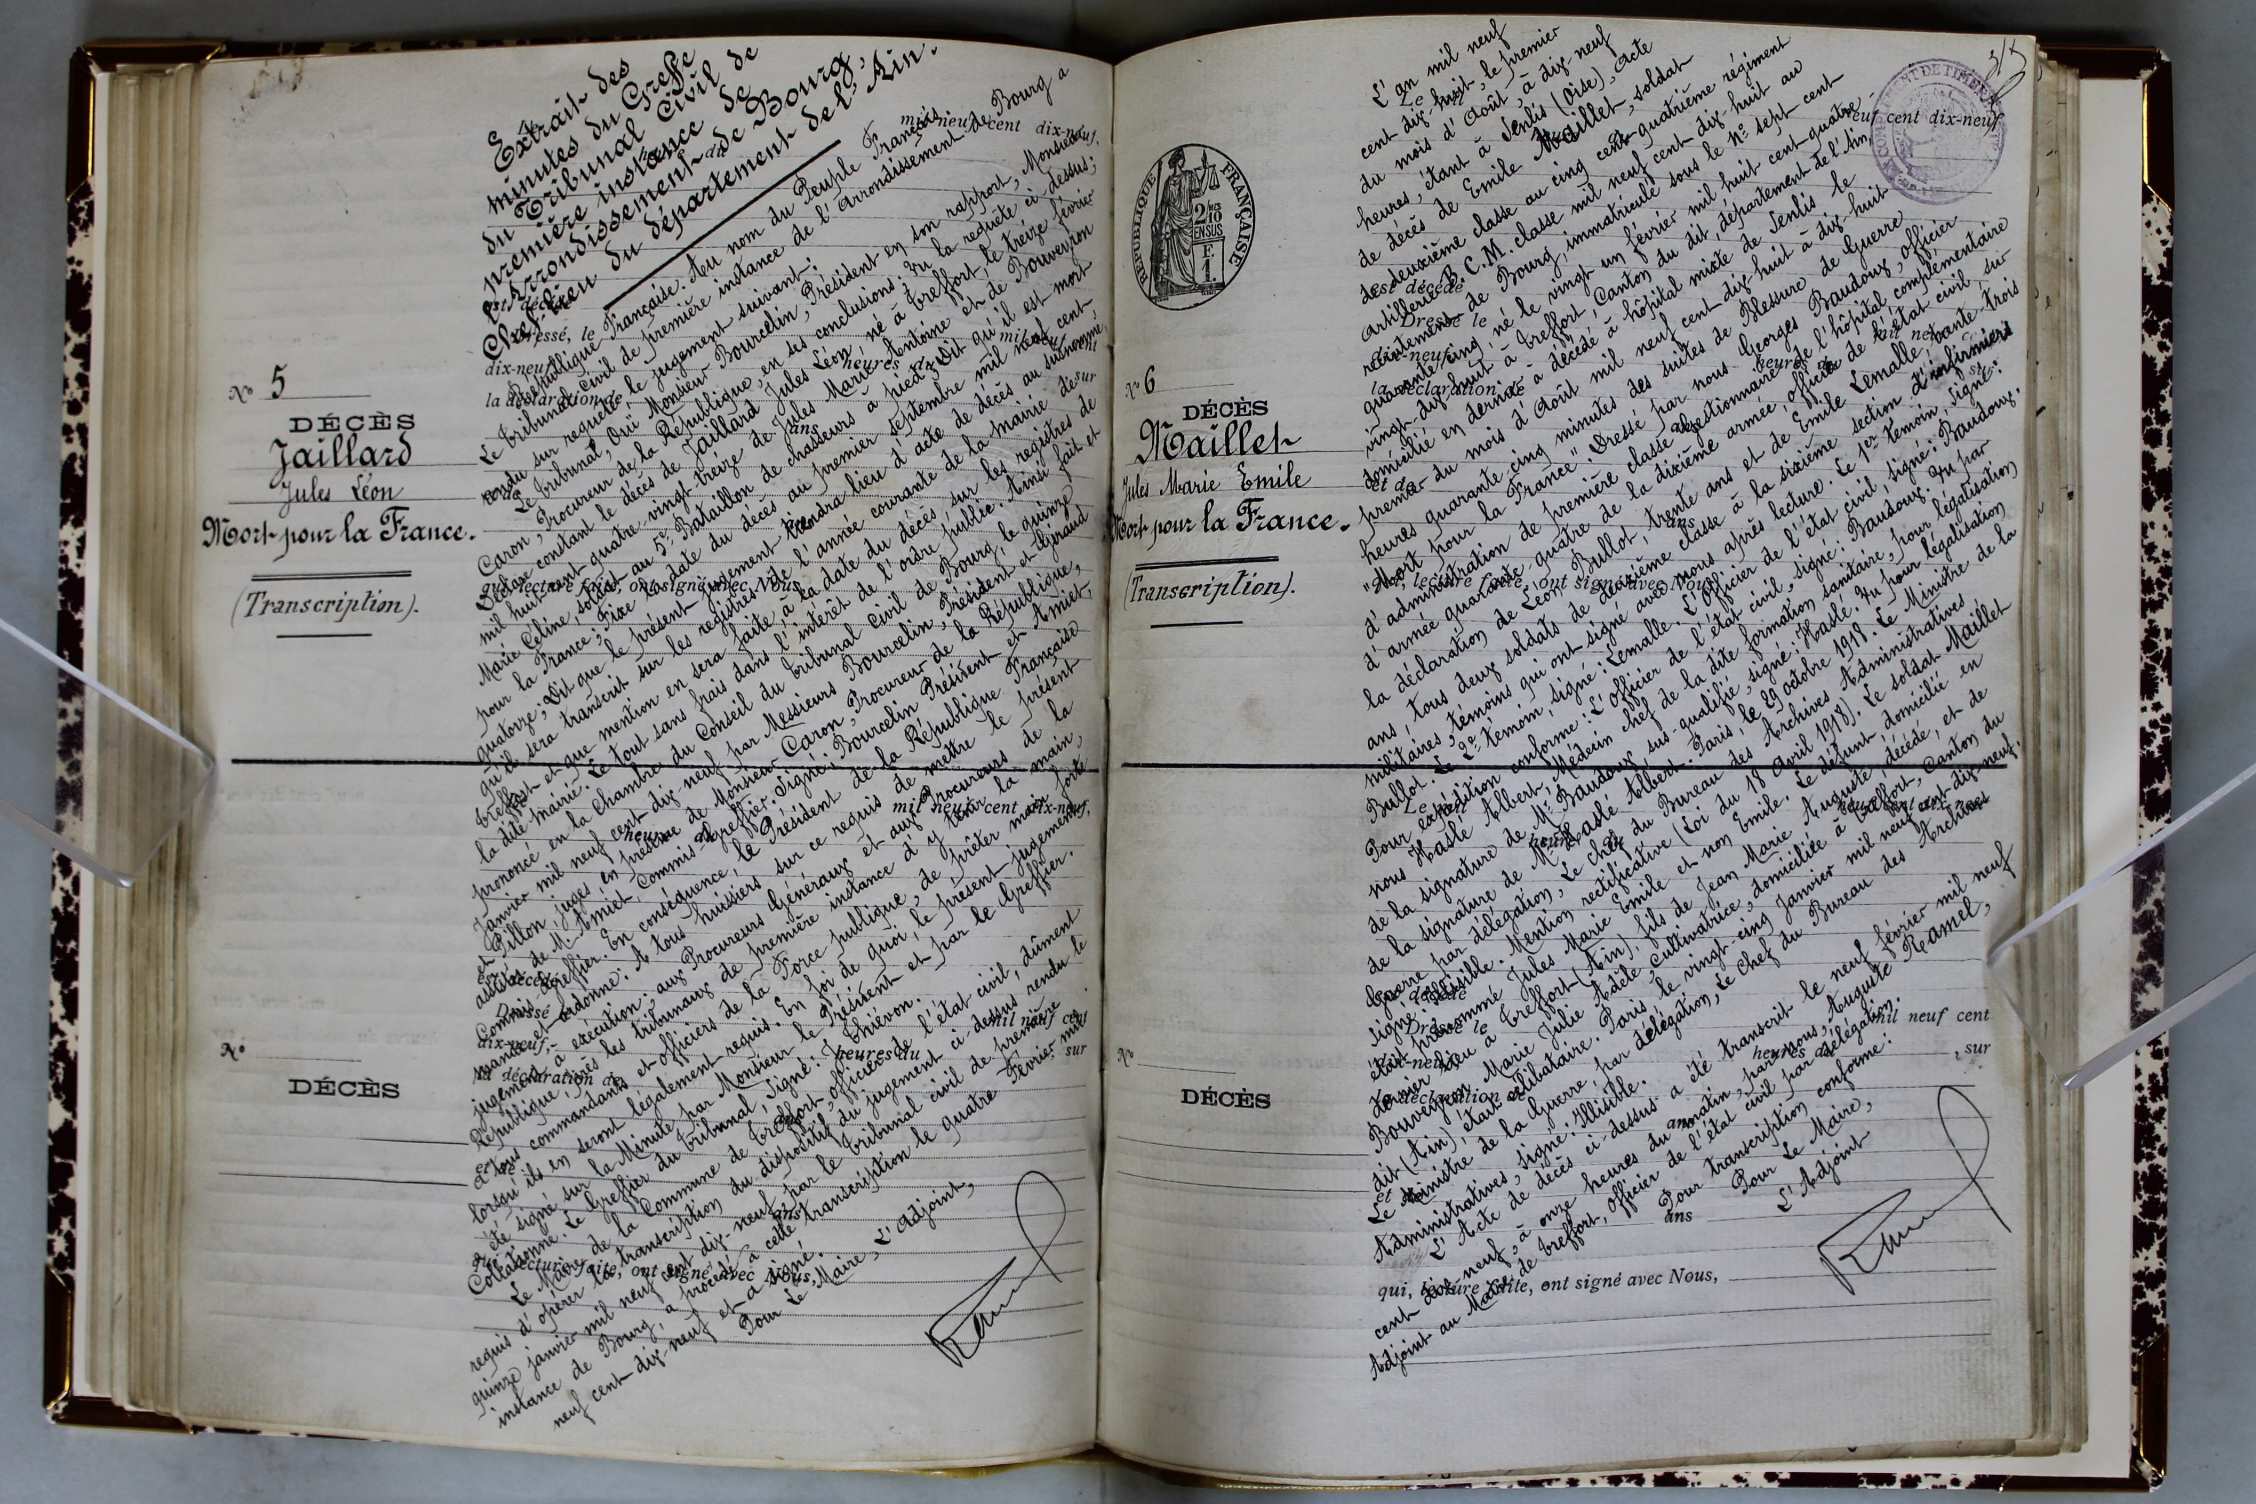 N° 5
DÉCÈS
Jaillard
Jules Léon
Mort pour la France.
(Transcription).
Extrait des
minutes du Greffe
du Tribunal Civil de
première instance de
l'Arrondissement de Bourg,
Chef-lieu du département de l'Ain.
République Française. Au nom du Peuple Français
Le tribunal civil de première instance de l'Arrondissement de Bourg a
rendu sur requête le jugement suivant:
Le tribunal, Ouï Monsieur Bourcelin, Président en son rapport, Monsieur
Caron, Procureur de la République, en ses conclusions; Vu la requête ci-dessus;
Déclare constant le décès de Jaillard Jules Léon, né à Treffort, le treize février
mil huit cent quatre vingt treize de Jules Marie Antoine et de Bouveyron
Marie Céline, soldat au 5e Bataillon de chasseurs à pied; Dit qu'il est mort
pour la France; Fixe la date du décès au premier septembre mil neuf cent
quatorze; Dit que le présent jugement tiendra lieu d'acte de décès au susnommé,
qu'il sera transcrit sur les registres de l'année courante de la mairie de
Treffort et que mention en sera faite, à la date du décès sur les registres de
la dite mairie. Le tout sans frais dans l'intérêt de l'ordre public. Ainsi fait et
prononcé en la Chambre du Conseil du tribunal civil de Bourg, le quinze
Janvier mil neuf cent dix-neuf par Messieurs Bourcelin, Président et Gyraud
et Pillon, juges en présence de Monsieur Caron, Procureur de la République,
assistés de M. Amiet, commis-greffier. Signé: Bourcelin Président et Amiet,
Commis-greffier. En conséquence, le Président de la République Française
mande et ordonne: A tous huissiers sur ce requis de mettre le présent
jugement à exécution: aux Procureurs Généraux et aux Procureurs de la
République, près les tribunaux de première instance d'y tenir la main,
à tous commandants et officiers de la Force publique, de prêter main forte
lorsqu'ils en seront légalement requis. En foi de quoi, le présent jugement
a été signé sur la Minute par Monsieur le Président et par le Greffier.
Collationné. Le Greffier du tribunal, Signé: J. Thiévon.
Le Maire de la Commune de Treffort, officier de l'état civil, dûment
requis d'opérer la transcription du dispositif du jugement ci-dessus rendu le
quinze janvier mil neuf cent dix-neuf par le tribunal civil de première
instance de Bourg, a procédé à cette transcription le quatre Février mil
neuf cent dix-neuf et a signé.
Pour Le Maire, L'Adjoint,
N°
DÉCÈS
RÉPUBLIQUE FRANÇAISE
2/10
EN SUS
F.
1.
N° 6
DÉCÈS
Maillet
Jules Marie Emile
Mort pour la France.
(Transcription).
L'an mil neuf
cent dix-huit, le premier
du mois d'Août, à dix-neuf
heures, étant à Senlis (Oise), Acte
de décès de Emile Maillet, soldat
de deuxième classe au cinq cent quatrième régiment
artillerie B.C.M. classe mil neuf cent dix huit au
recrutement de Bourg, immatriculé sous le N° sept cent
quarante cinq, né le vingt un février mil huit cent quatre-
vingt-dix huit à Treffort, Canton du dit, département de l'Ain,
domicilié en dernier à décédé à hôpital mixte de Senlis le
premier du mois d'Août mil neuf cent dix huit à dix huit
heures quarante cinq minutes des suites de Blessure de Guerre
"Mort pour la France". Dressé par nous Georges Baudoux, officier
d'administration de première classe gestionnaire de l'hôpital complémentaire
d'armée quarante quatre de la dixième armée, officier de l'état civil, sur
la déclaration de Léon Bullot, trente ans et de Emile Lemalle, trente-trois
ans, tous deux soldats de deuxième classe à la sixième section d'infirmiers
militaires, témoins qui ont signé avec nous après lecture. Le 1er témoin, signé:
Bullot. Le 2e témoin, signé: Lemalle. L'Officier de l'état civil, signé: Baudoux.
Pour expédition conforme: L'Officier de l'état civil, signé: Baudoux. Vu par
nous Hasle Albert, Médecin chef de la dite formation sanitaire, pour légalisation
de la signature de Mr Baudoux, sus-qualifié, signé: Hasle. Vu pour légalisation
de la signature de Mr Hasle Albert. Paris, le 29 octobre 1918. Le Ministre de la
Guerre par délégation, Le Chef du Bureau des Archives Administratives
signé: Illisible. Mention rectificative (Loi du 18 Avril 1918). Le soldat Maillet
était prénommé Jules Marie Emile et non Emile. Le défunt, domicilié en
dernier lieu à Treffort (Ain), fils de Jean Marie Auguste, décédé, et de
Bouveyron Marie Julie Adèle, cultivatrice, domiciliée à Treffort, Canton du
dit (Ain), était célibataire. Paris, le vingt-cinq Janvier mil neuf cent dix-neuf.
Le Ministre de la Guerre, par délégation, Le Chef du Bureau des Archives
Administratives, signé: Illisible.
L'Acte de décès ci-dessus a été transcrit le neuf février mil neuf
cent dix-neuf, à onze heures du matin, par nous, Auguste Ramel,
Adjoint au Maire de Treffort, officier de l'état civil par délégation.
Pour transcription conforme:
Pour Le Maire,
L'Adjoint
N°
DÉCÈS
qui, lecture faite, ont signé avec Nous,